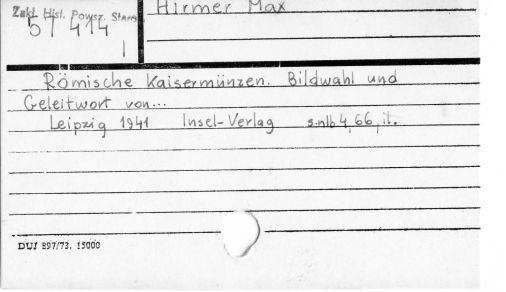 Zakł. Hist. Powsz. Staroż.
Hirmer Max
57 414
I
Römische Kaisermünzen. Bildwahl und
Geleitwort von...
Leipzig 1941 Insel-Verlag s.nlb 4, 66, il.
DUJ 897/73. 15000